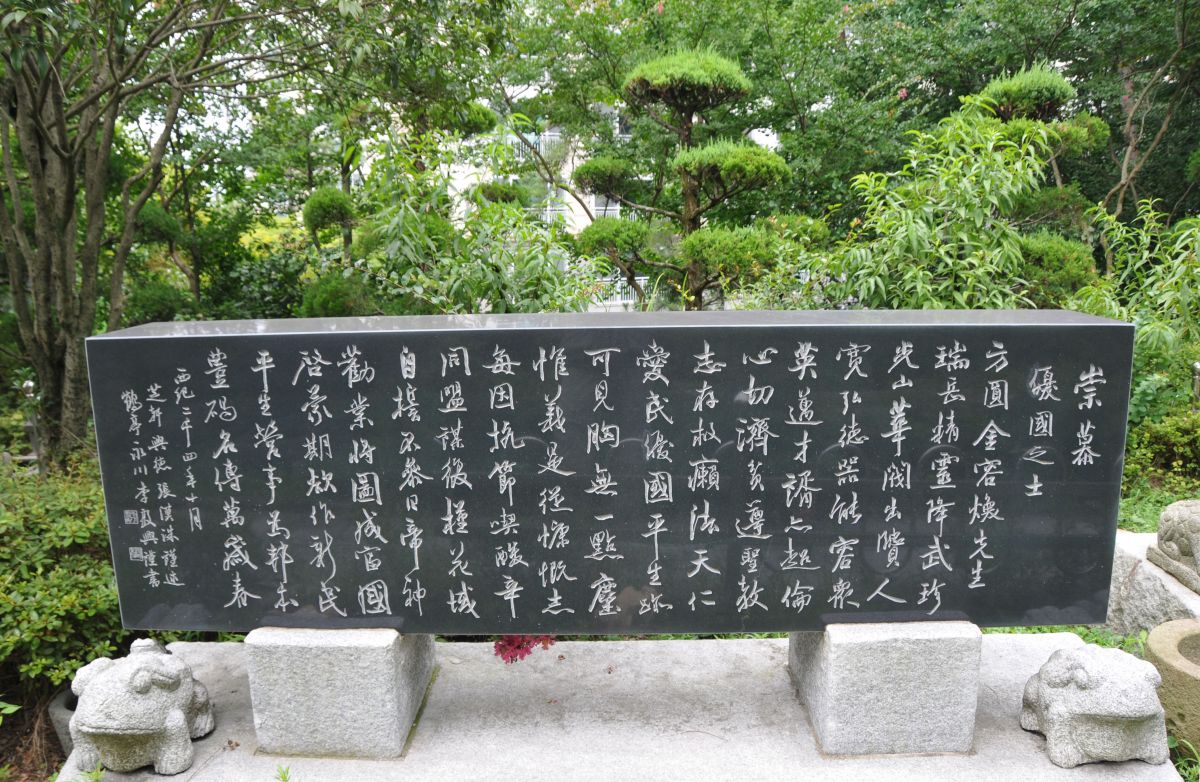 崇慕
優國之士
方圓金容煥先生
瑞岳精靈降武珍
光山華閥出賢人
寬弘德器能容眾
英邁才謂亦超倫
心切濟貧遵聖教
志存救癩法天仁
愛民憂國平生跡
可見胸無一點塵
惟義是從慷慨志
每因抗節喫酸辛
同盟謀復槿花域
自擔不參日帝神
勸業將圖成富國
啓蒙期欲作新民
平生營事為邦本
豊碣名傳萬歲春
西紀二千四年十月
芝軒 興德 張漢 謹述
鶴亭 永川 李敦興 謹書